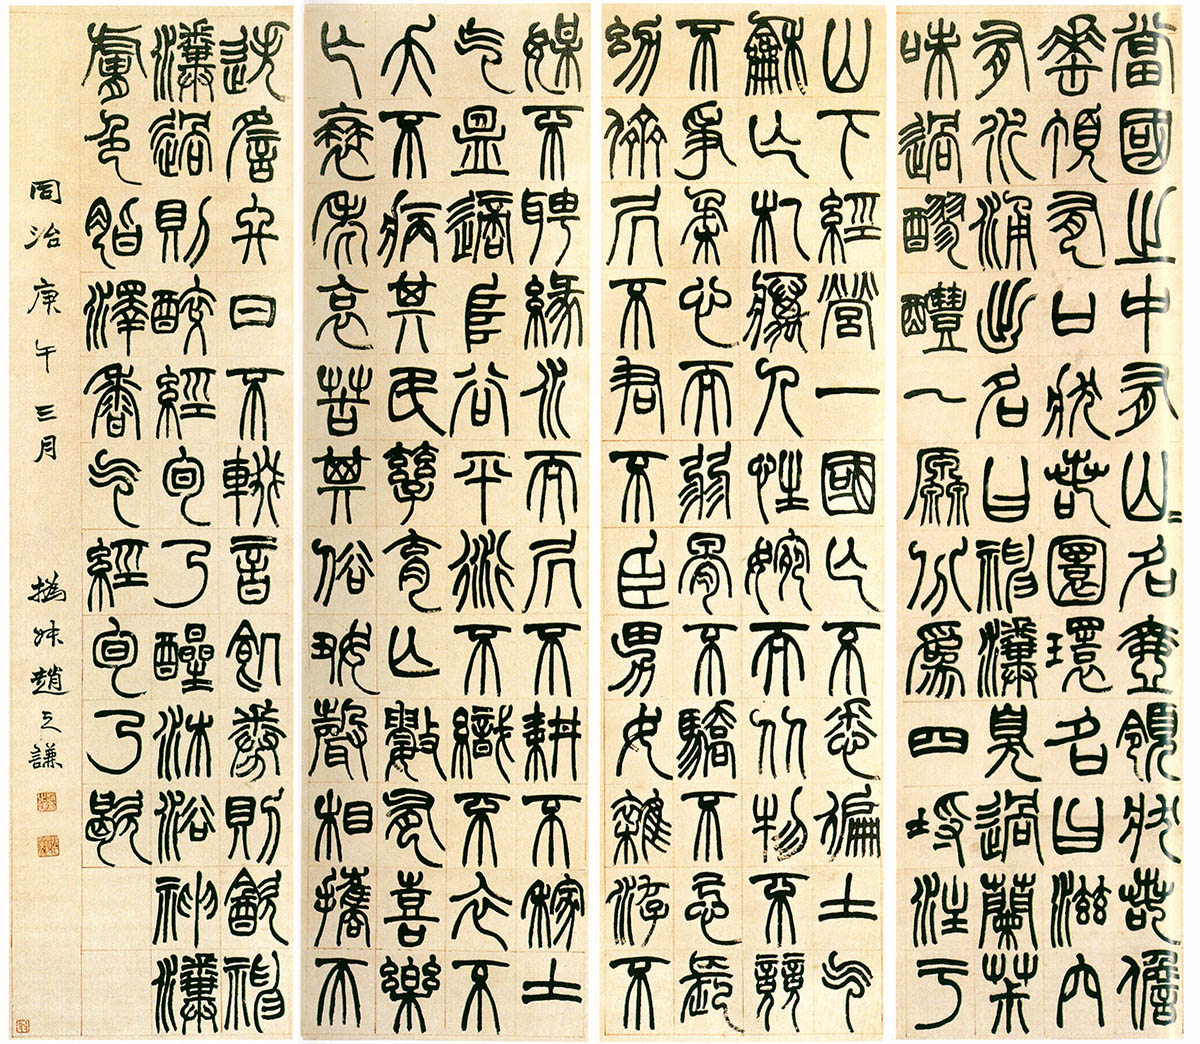 當國之中有山=名壺領狀若儋
垂頂有口狀若圜環名曰滋穴
有水涌出名曰神瀵臭過蘭茮
味過醪醴一原分為四埒注于
山下經營一國亡不悉徧土气
龢亡札癘人性婉而从物不競
不爭柔心而弱骨不驕不忌長
幼儕居不君不臣男女雜游不
媒不聘緣水而居不耕不稼土
气昷適阜谷平不織不衣不
夭不病其民孳育亡數有喜樂
亡衰老哀苦其俗好聲相攜而
迭䚻終日不輟音飢勌則飲神
瀵過則醉經旬乃醒沐浴神瀵
膚色脂澤香气經旬乃歇
同治庚午三月 撝叔趙之謙